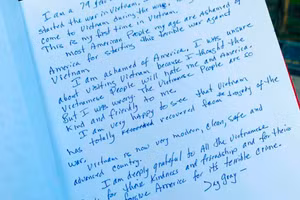 I am a 74 year
started the war in Vietnam,
to Vietnam during
This is my first time in Vietnam.
most American People are ashamed of
America for starting this terrible war against
Vietnam.
I am ashamed of America. I was unsure
about visiting Vietnam because I thought the
Vietnamese People will hate me and America.
But I was wrong. The Vietnamese People are so
kind and friendly to me.
I am very happy to see that Vietnam
has totally recovered from the tragedy of the
war. Vietnam is now very modern, clean, safe and
advanced country.
I am deeply grateful to all the Vietnamese
for their kindness and friendship and for their
America for its terrible crime.